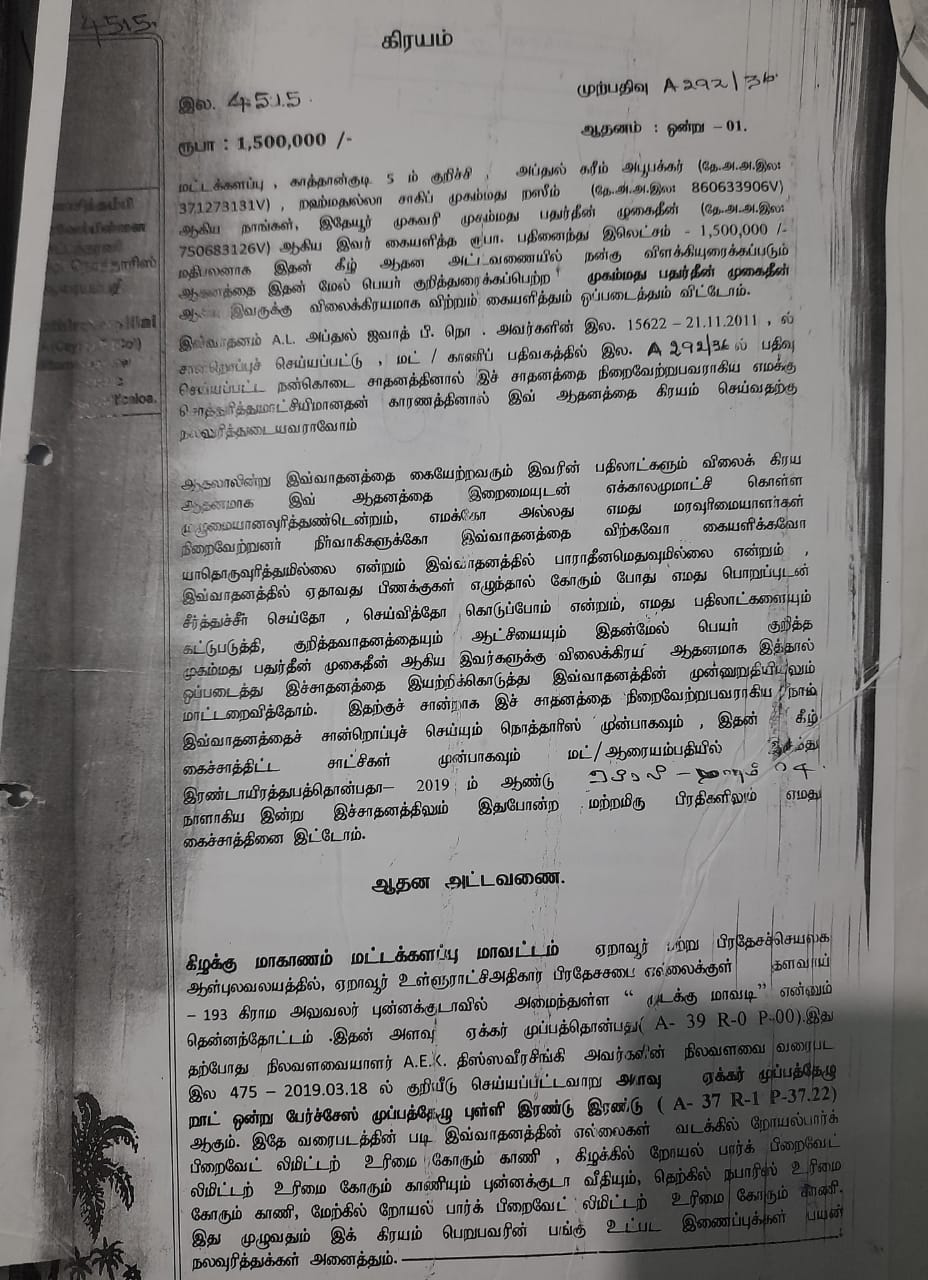 4515
கிரயம்
இல. 4515
முற்பதிவு A 292/36
ரூபா : 1,500,000 /-
ஆதனம் : ஒன்று – 01.
மட்டக்களப்பு , காத்தான்குடி 5 ம் குறிச்சி , அப்துல் கரீம் அபூபக்கர் (தே.அ.அ.இல:
371273131V) , றஹ்மதுல்லா சாகிப் முகம்மது நஸீம் (தே.அ.அ.இல: 860633906V)
ஆகிய நாங்கள், இதேயூர் முகவரி முகம்மது பதுர்தீன் முகைதீன் (தே.அ.அ.இல:
750683126V) ஆகிய இவர் கையளித்த ரூபா. பதினைந்து இலெட்சம் - 1,500,000 /-
மதிபலனாக இதன் கீழ் ஆதன அட்டவணையில் நன்கு விளக்கியுரைக்கப்படும்
ஆதனத்தை இதன் மேல் பெயர் குறித்துரைக்கப்பெற்ற முகம்மது பதுர்தீன் முகைதீன்
இவருக்கு விலைக்கிரயமாக விற்றும் கையளித்தும் ஒப்படைத்தும் விட்டோம்.
இவ்வாதனம் A.L. அப்துல் ஜவாத் பீ. நொ . அவர்களின் இல. 15622 – 21.11.2011 , ல்
சான்றொப்புச் செய்யப்பட்டு , மட் / காணிப் பதிவகத்தில் இல. A 292/36 ல் பதிவு
செய்யப்பட்ட நன்கொடை சாதனத்தினால் இச் சாதனத்தை நிறைவேற்றுபவராகிய எமக்கு
காரணத்தினால் இவ் ஆதனத்தை கிரயம் செய்வதற்கு
நலவுரித்துடையவராவோம்
ஆதலாலின்று இவ்வாதனத்தை கையேற்றவரும் இவரின் பதிலாட்களும் விலைக் கிரய
ஆதனமாக இவ் ஆதனத்தை இறைமையுடன் எக்காலமுமாட்சி கொள்ள
முழுமையானவுரித்துண்டென்றும், எமக்கோ அல்லது எமது மரவுரிமையாளர்கள்
நிறைவேற்றுனர் நிர்வாகிகளுக்கோ இவ்வாதனத்தை விற்கவோ கையளிக்கவோ
யாதொருவுரித்துமில்லை என்றும் இவ்வாதனத்தில் பாராதீனமெதுவுமில்லை என்றும் ,
இவ்வாதனத்தில் ஏதாவது பிணக்குகள் எழுந்தால் கோரும் போது எமது பொறுப்புடன்
சீர்த்துச்சீர் செய்தோ , செய்வித்தோ கொடுப்போம் என்றும், எமது பதிலாட்களையும்
கட்டுபடுத்தி, குறித்தவாதனத்தையும் ஆட்சியையும் இதன்மேல் பெயர் குறித்த
முகம்மது பதுர்தீன் முகைதீன் ஆகிய இவர்களுக்கு விலைக்கிரய ஆதனமாக இத்தால்
ஒப்படைத்து இச்சாதனத்தை இயற்றிக்கொடுத்து இவ்வாதனத்தின் முன்னுறுதியியலும்
மாட்டறைவித்தோம். இதற்குச் சான்றாக இச் சாதனத்தை நிறைவேற்றுபவராகிய நாம்
இவ்வாதனத்தைச் சான்றொப்புச் செய்யும் நொத்தாரிஸ் முன்பாகவும் , இதன் கீழ்
கைச்சாத்திட்ட சாட்சிகள் முன்பாகவும் மட்/ஆரையம்பதியில்
இரண்டாயிரத்துபத்தொன்பதா– 2019 ம் ஆண்டு
நாளாகிய இன்று இச்சாதனத்திலும் இதுபோன்ற மற்றமிரு பிரதிகளிலும் எமது
கைச்சாத்தினை இட்டோம்.
ஆதன அட்டவணை.
கிழக்கு மாகாணம் மட்டக்களப்பு மாவட்டம் ஏறாவூர் பற்று பிரதேசச்செயலக
ஆள்புலவலயத்தில், ஏறாவூர் உள்ளூராட்சிஅதிகார பிரதேசசபை எல்லைக்குள் தளவாய்
– 193 கிராம அலுவலர் புன்னக்குடாவில் அமைந்துள்ள “ முடக்கு மாவடி” என்னும்
தென்னந்தோட்டம் .இதன் அளவு ஏக்கர் முப்பத்தொன்பது( A- 39 R-0 P-00).இது
தற்போது நிலவளவையாளர் A.E.K. திஸ்ஸவீரசிங்கி அவர்களின் நிலவளவை வரைபட
இல 475 – 2019.03.18 ல் குறியீடு செய்யப்பட்டவாறு அளவு ஏக்கர் முப்பத்தேழு
றூட் ஒன்று பேர்ச்சேஸ் முப்பத்தேழு புள்ளி இரண்டு இரண்டு ( A- 37 R-1 P-37.22)
ஆகும். இதே வரைபடத்தின் படி இவ்வாதனத்தின் எல்லைகள் வடக்கில் றோயல்பார்க்
பிறைவேட் லிமிட்டற் உரிமை கோரும் காணி , கிழக்கில் றோயல் பார்க் பிறைவேட்
லிமிட்டற் உரிமை கோரும் காணியும் புன்னக்குடா வீதியும், தெற்கில் நபாரிஸ் உரிமை
கோரும் காணி, மேற்கில் றோயல் பார்க் பிறைவேட் லிமிட்டற் உரிமை கோரும் காணி.
இது முழுவதும் இக் கிரயம் பெறுபவரின் பங்கு உட்பட இணைப்புக்கள் பயன்
நலவுரித்துக்கள் அனைத்தும்.